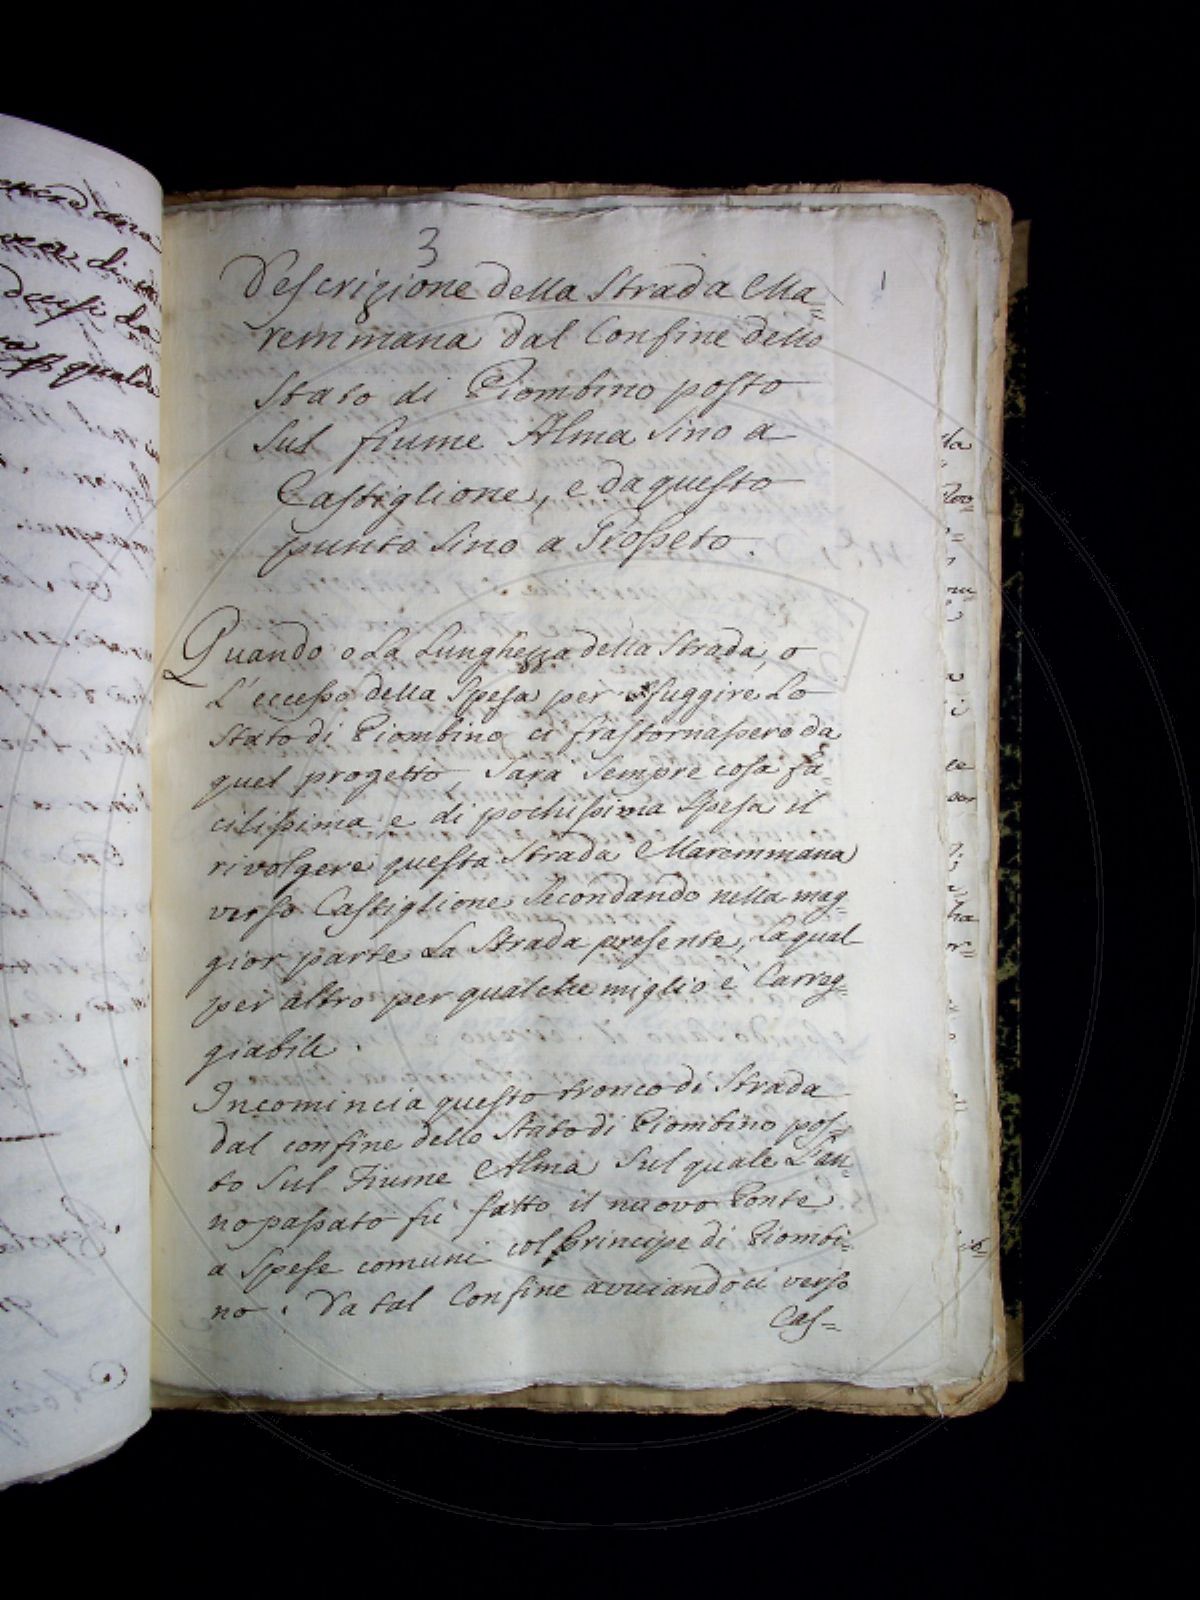 3
1
Descrizione della Strada Ma=
remmana dal Confine dello
Stato di Piombino posto
sul fiume Alma sino a
Castiglione, e da questo
punto sino a Grosseto.
Quando o La Lunghezza della Strada, o
L'eccesso della Spesa per sfuggire Lo
Stato di Piombino ci frastornassero da
quel progetto, sarà sempre cosa fa=
cilissima e di pochissima Spesa il
rivolgere questa Strada Maremmana
verso Castiglione secondando nella mag=
gior parte La Strada presente, La qual
per altro per qualche miglio è Carreg=
giabile.
Incomincia questo tronco di Strada
dal confine dello Stato di Piombino pos=
to sul Fiume Alma sul quale L'an=
no passato fù fatto il nuovo Ponte
a Spese comuni col Principe di Piombi=
no. Da tal Confine avviandoci verso
Cas=